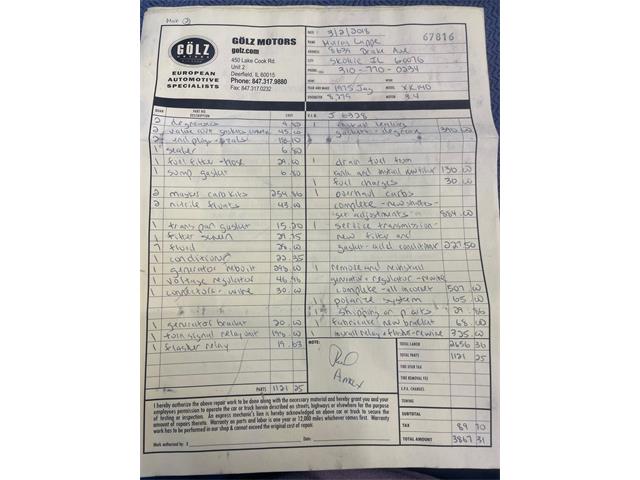 GÖLZ MOTORS
golz.com
450 Lake Cook Rd.
Unit 2
Deerfield, IL 60015
Phone: 847.317.9880
Fax: 847.317.0232
GÖLZ
MOTORS
EUROPEAN
AUTOMOTIVE
SPECIALISTS
DATE 3/2/2018
67816
NAME
ADDRESS 8639 Drake Ave
SKOKIE IL 60076
PHONE 310-770-0234
YEAR AND MAKE 1955 Jag MODEL XK140
8,275 MOTOR 3.4
QUAN PART NO. DESCRIPTION COST
V.I.N. J 6328
2 degreaser
2 valve
2 end plugs - seals
1 sealer 6.80
1 fuel filter - hose 29.00
1 sump gasket 6.80
2 master carb kits 254.86
2 nitrile floats 43.00
1 trans pan gasket 15.20
1 filter screen 29.75
7 fluid 28.00
1 conditioner 22.35
1 generator rebuilt
1 voltage regulator 46.96
1 connectors - wire 30.00
1 generator bracket 20.00
1 turn signal relay unit
1 flasher relay 19.63
gaskets - degrease
1 drain fuel from
tank and install
130.00
1 fuel charges 30.00
1 overhaul carbs
complete - new shafts -
set adjustments - 884.00
1 service transmission -
new filter and
gasket - add conditioner 227.50
1 remove and reinstall
generator + regulator - rewire
complete - all incorrect 507.00
1 polarize system 65.00
1 shipping on parts 29.86
1 fabricate new bracket 68.00
1 install relay + flasher - rewire 325.00
PARTS 1121 25
NOTE:
Amex
TOTAL LABOR 2656 36
TOTAL PARTS 1121 25
TIRE STAR TAX
TIRE REMOVAL FEE
E.P.A. CHARGES
TOWING
SUBTOTAL
TAX 89 70
TOTAL AMOUNT 3867 31
I hereby authorize the above repair work to be done along with the necessary material and hereby grant you and your
employees permission to operate the car or truck herein described on streets, highways or elsewhere for the purpose
of testing or inspection. An express mechanic's lien is hereby acknowledged on above car or truck to secure the
amount of repairs thereto. Warranty on parts and labor is one year or 12,000 miles whichever comes first. Warranty
work has to be performed in our shop & cannot exceed the original cost of repair.
Work authorized by: X
Date: